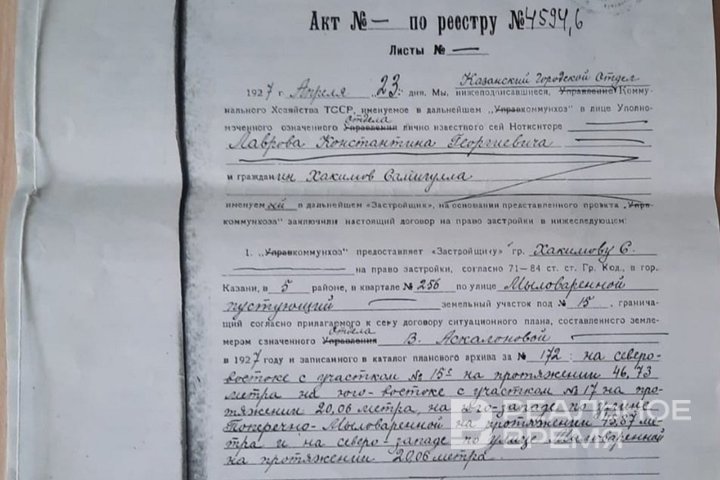 Акт № — по реестру № 4594,6
Листы № —
Казанский Городской Отдел
1927 г Апреля 23 дня, Мы, нижеподписавшиеся, Управление Комму-
нального Хозяйства ТССР, именуемое в дальнейшем „Управкоммунхоз" в лице Уполно-
Отдела
моченного означенного Управления лично известного сей Нотконторе
Лаврова Константина Георгиевича
и гражданин Хакимов Самигулла
именуемый в дальнейшем «Застройщик», на основании представленного проекта „Упр-
коммунхоз" заключили настоящий договор на право застройки в нижеследующем:
1. „Управкоммунхоз" предоставляет „Застройщику" гр. Хакимову С.
на право застройки, согласно 71—84 ст. ст. Гр. Код., в гор.
Казани, в 5 районе, в квартале № 256 по улице Мыловаренной
пустующий земельный участок под № 15, гранича-
щий согласно прилагаемого к сему договору ситуационного плана, составленного земле-
Отдела
мером означенного Управления В. Аскалоновой
в 1927 году и записанного в каталог планового архива за № 172: на северо-
востоке с участком № 15а на протяжении 46,73
метра на юго-востоке с участком № 17 на про-
тяжении 20,06 метра, на юго-западе по улице
Поперечно-Мыловаренной на протяжении 45,57 ме-
тра и на северо-западе по улице Мыловаренной
на протяжении 20,06 метра.
РЕАЛЬНОЕ
ВРЕМЯ